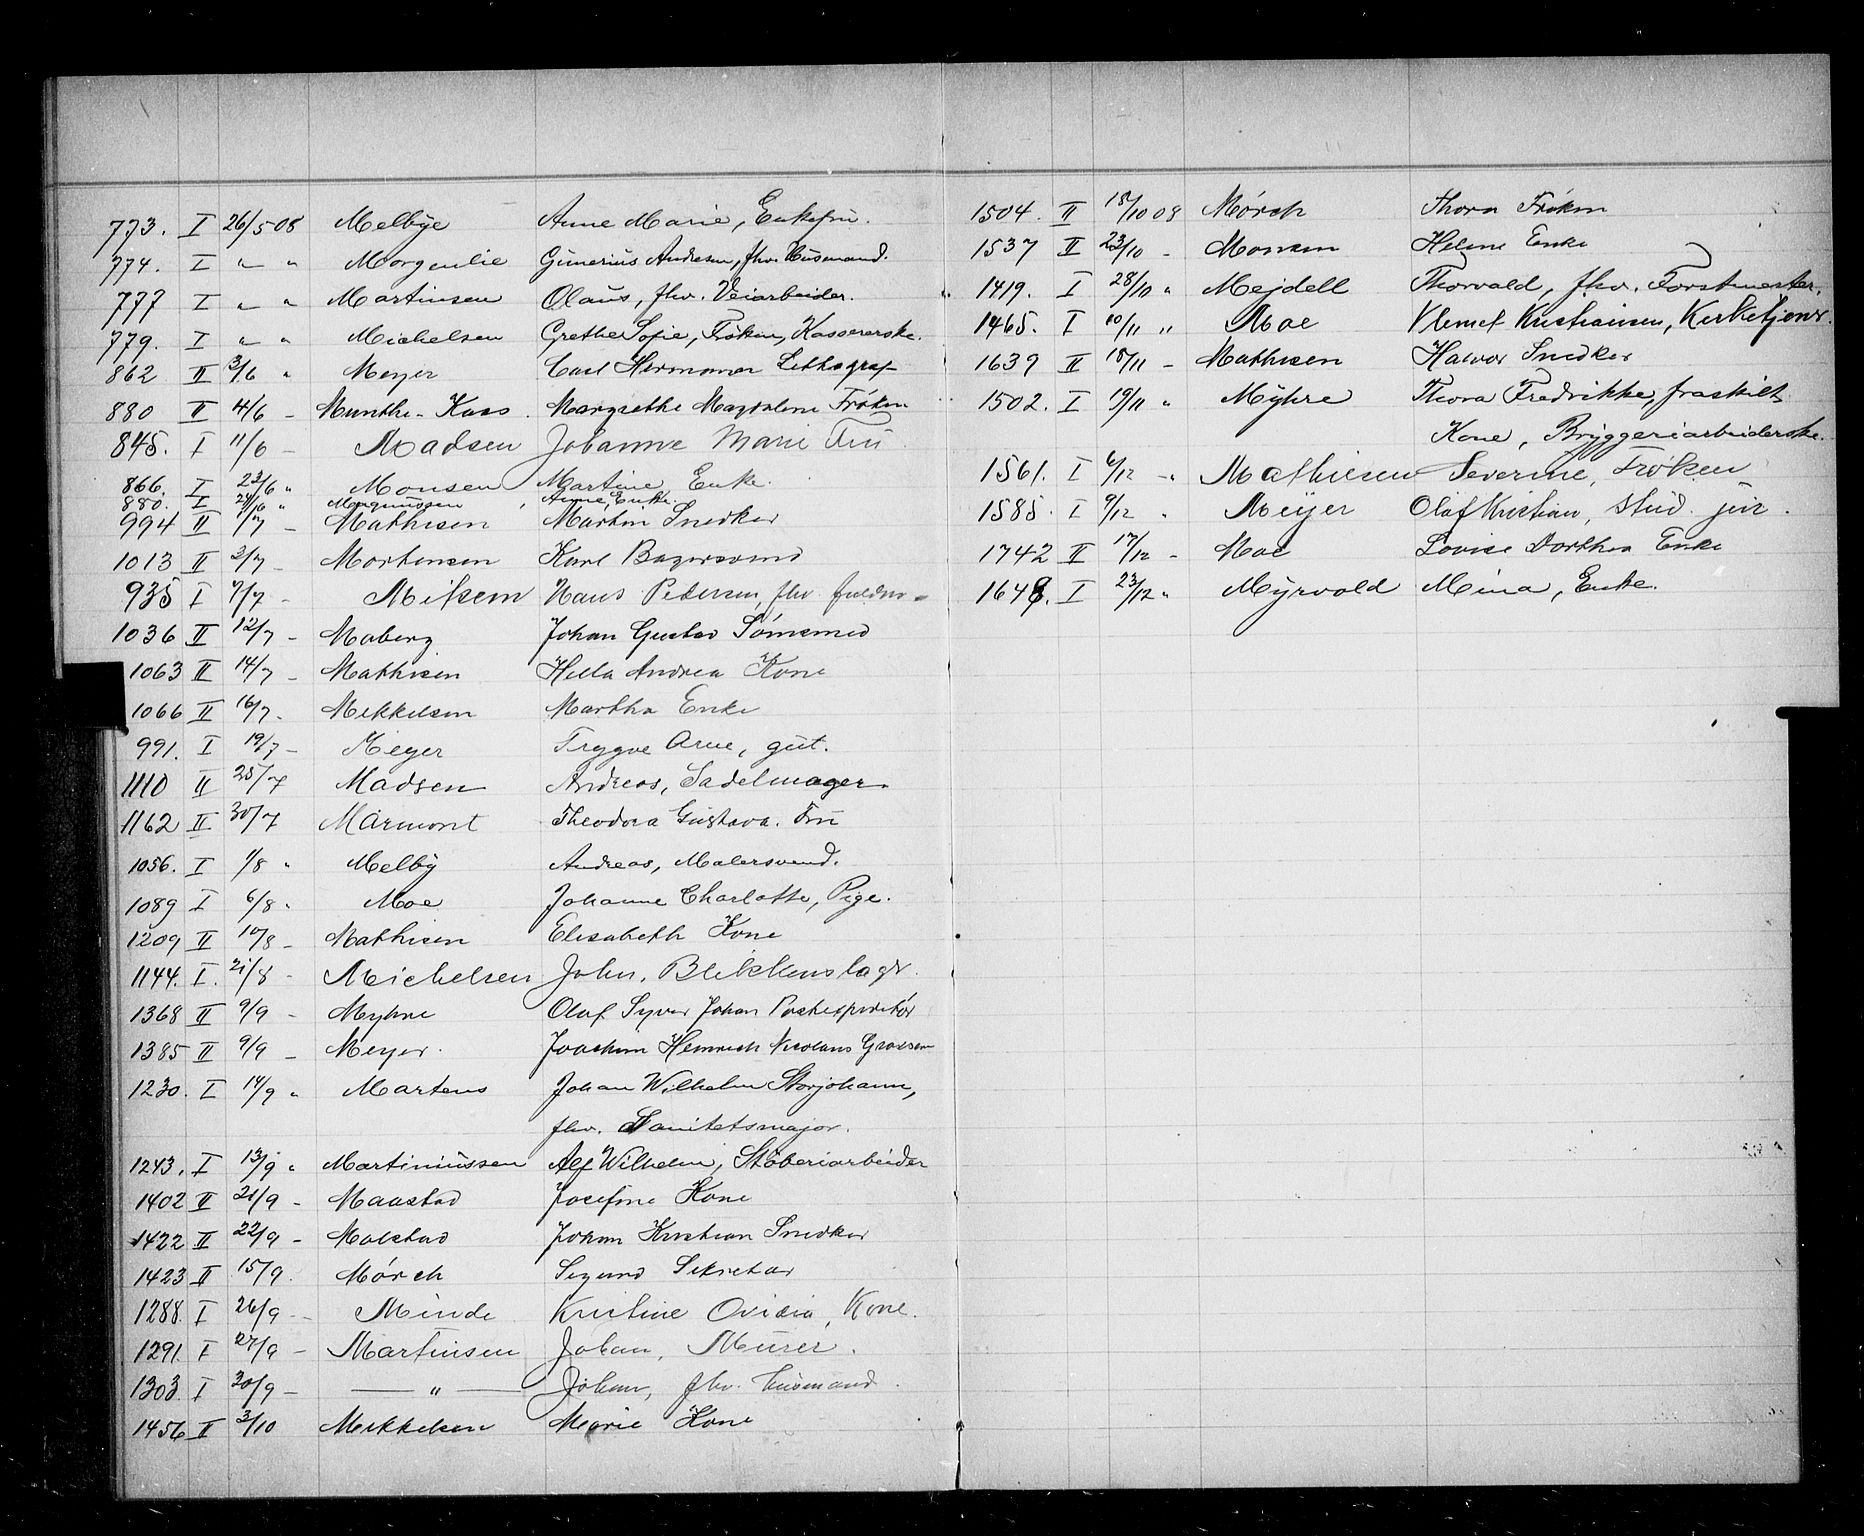 773. I 26/5 08 Melbye Anne Marie, Enkefru.
774. I " " Morgenlie Gunerius Andresen, fhv. Husmand.
777 I " " Martinsen Olaus, fhv. Veiarbeider.
779. I " " Michelsen Grethe Sofie, Frøken, Kassererske.
862 II 3/6 " Meyer Carl Hermann Lithograf
880 II 4/6 - Munthe-Kaas. Margrethe Magdalene Frøken
845. I 11/6 - Madsen Johanne Marie Fru
866. I 23/6 " Monsen Martine, Enke.
880. I 24/6 " Magnussen, Anne, Enke.
994 II 1/7 - Mathisen Martin Snedker
1013 II 3/7 - Mortensen Karl Bagersvend
935 I 7/7 - Hans Pedersen, fhv.
1036 II 12/7 - Moberg Johan Gustav
1063 II 14/7 - Mathisen Hella Andrea Kone
1066 II 16/7 - Mikkelsen Martha Enke
991. I 19/7 - Meyer Trygve Arne, gut.
1110 II 25/7 Madsen Andreas, Sadelmager.
1162 II 30/7 Marmont Theodora Gustava. Fru
1056. I 1/8 " Melby Andreas, Malersvend.
1089 I 6/8 " Moe Johanne Charlotte, Pige.
1209 II 10/8 - Mathisen Elisabeth Kone
1144. I. 21/8 - Michelsen John. Blikkenslagr.
1368 II 9/9 - Myhre Olaf Syver Johan Postexpeditør
1385 II 9/9 - Meyer. Joachim Heinrich Nicolaus
1230. I 14/9 " Martens Johan Wilhelm Storjohann,
fhv. Sanitetsmajor.
1243. I 13/9 " Martiniussen Alf Wilhelm, Støberiarbeider
1402 II 21/9 - Maastad Josefine Kone
1422 II 22/9 - Molstad Johan Kristian Snedker
1423 II 15/9. Mørch Sigurd Sekretær
1288. I 26/9 - Minde Kristine Ovidia, Kone.
1291. I 27/9 - Martinsen Johan, Murer.
1303. I 30/9 - — " — Johan, fhv. Husmand.
1456 II 3/10 Mikkelsen Marie Kone
1504. II 18/10 08 Mørch Thora Frøken
1537 II 23/10 - Monsen Helene Enke
1419. I 28/10 " Mejdell Thorvald, fhv. Forstmester.
1465. I 10/11 " Moe Klemet Kristiansen, Kirketjenr.
1639 II 18/11 - Mathisen Halvor Snedker
1502. I 19/11 " Myhre Thora Fredrikke, fraskilt
Kone, Bryggeriarbeiderske.
1561. I 6/12 - " Mathiesen Severine, Frøken
1585. I 9/12 " Meyer Olaf Kristian, stud. jur.
1742 II 17/12 - Moe Lovise Dorthea Enke
1648. I 23/12 " Myrvold Mina, Enke.